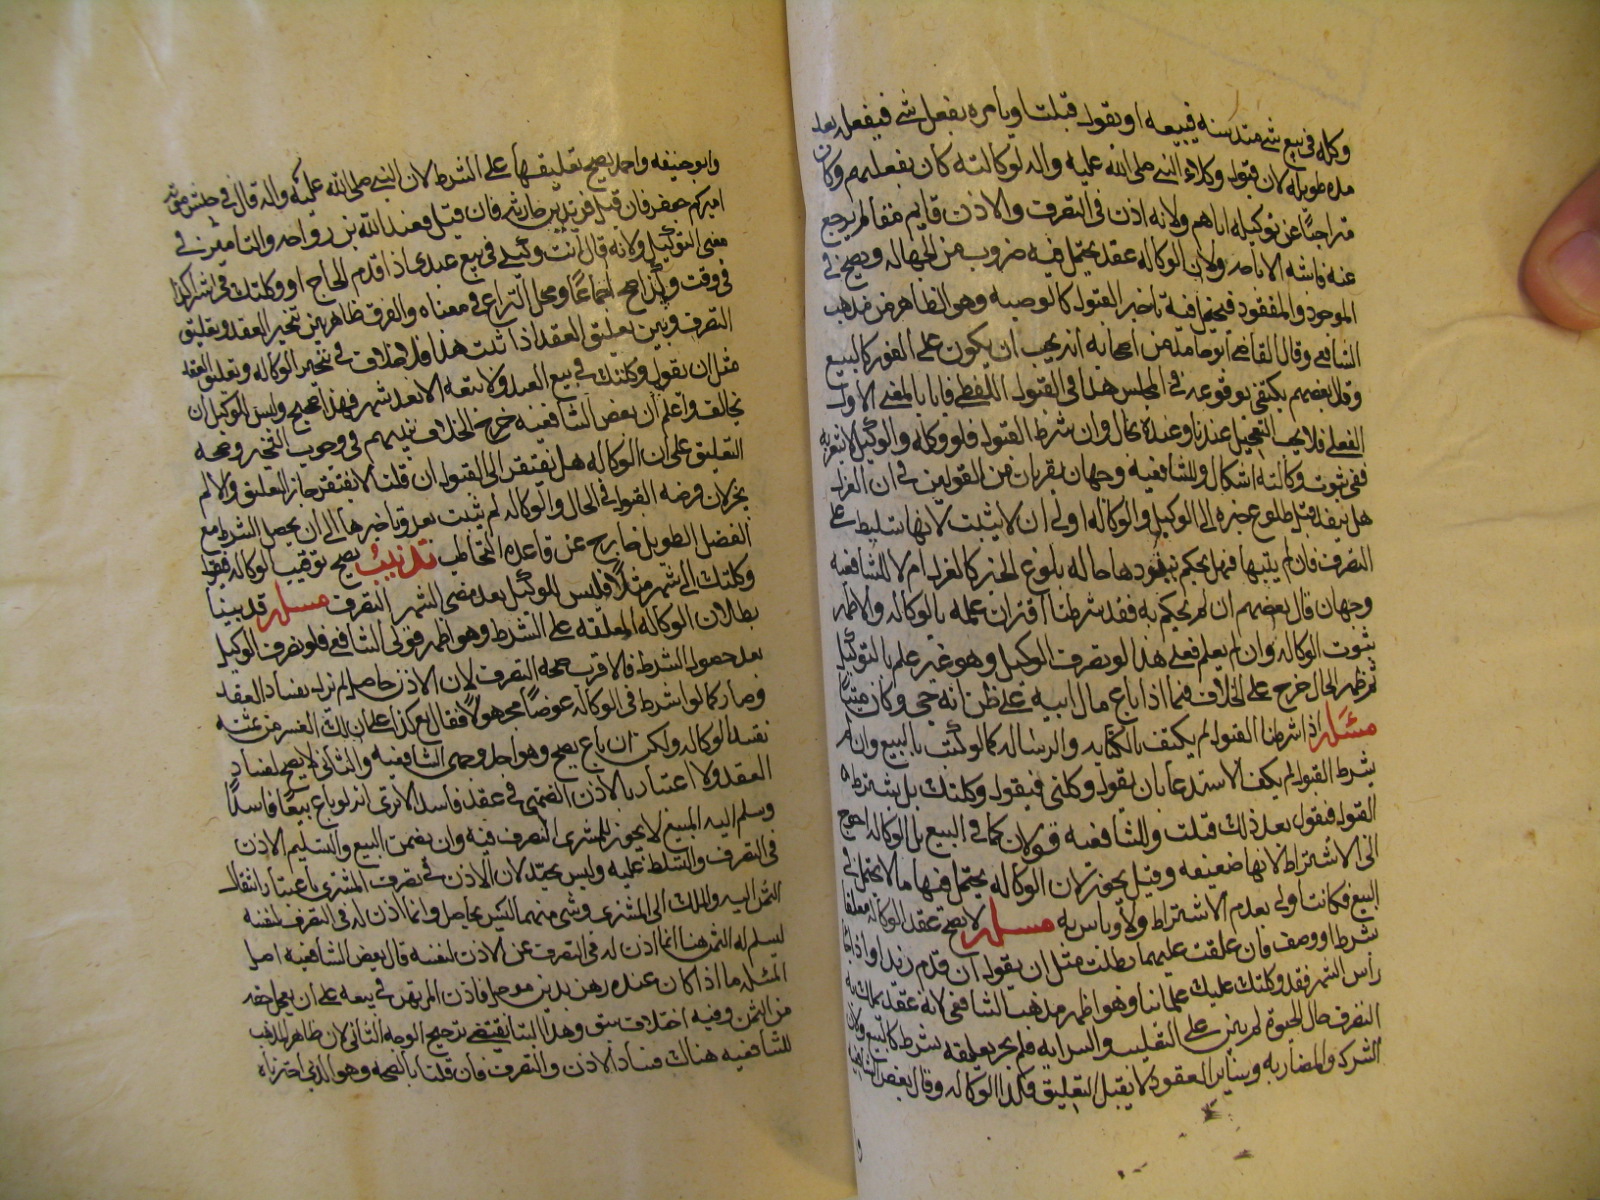 وكله في بيع شي منذ سنة فيبيعه او يقول قبلت او يامره بفعل شي فيفعله بعد
مدة طويلة لان قبول وكلاء النبي صلى الله عليه واله لوكالته كان بفعلهم وكان
متراخيا عن توكيله اياهم ولانه اذن في التصرف والاذن قايم ما لم يرجع
عنه فاشبه الاباحه ولان الوكاله عقد يحتمل فيه ضروب من الجهاله ويصح في
الموجود والمفقود فيحتمل فيه تاخير القبول كالوصيه وهو الظاهر من مذهب
الشافعي وقال القاضي ابو حامد من اصحابه انه يجب ان يكون على الفور كالبيع
وقال بعضهم يكتفى بوقوعه في المجلس هذا في القبول اللفظي فاما بالمعنى الاول
الفعلي فلا يجب التعجيل عندنا وعنده بحال وان شرط القبول فلو وكله والوكيل لا يشعر به
ففي ثبوت وكالته اشكال وللشافعيه وجهان يقربان من القولين في ان العزل
هل ينفذ قبل بلوغ خبره الى الوكيل والوكاله اولى ان لا يثبت لانها تسليط على
التصرف فان لم يثبتها فهل يحكم بنفوذها حاله بلوغ الخبر كالعزل ام لا للشافعيه
وجهان قال بعضهم ان لم يحكم به فقد شرطنا اقتران علمه بالوكاله والاظهر
ثبوت الوكاله وان لم يعلم فعلى هذا لو تصرف الوكيل وهو غير علم بالتوكيل
ثم ظهر الحال خرج على الخلاف فيما اذا باع مال ابيه على ظن انه حي وكان ميتا
مسئله اذا شرطنا القبول لم يكتف بالكتابه والرساله كما لو كتب بالبيع وان لم
يشرط القبول لم يكف الاستدعا بان يقول وكلني فيقول وكلتك بل يشترط
القبول فيقول بعد ذلك قبلت وللشافعيه قولان كما في البيع بل الوكاله احوج
الى الاشتراط لانها ضعيفه وقيل يجوز لان الوكاله يحتمل فيها ما لا يحتمل في
البيع فكانت اولى بعدم الاشتراط ولا باس به مسئله لا يصح عقد الوكاله معلقا
بشرط او وصف فان علقت عليهما بطلت مثل ان يقول ان قدم زيد او اذا جا
راس الشهر فقد وكلتك عليه علماؤنا وهو اظهر مذهب الشافعي لانه عقد يملك به
التصرف حال الحيوة لم يبن على التغليب والسرايه فلم يجز تعليقه بشرط كالبيع ولان
الشركه والمضاربه وساير العقود لا يقبل التعليق فكذا الوكاله وقال بعض الشافعيه
وابو حنيفه واحمد يصح تعليقها على الشرط لان النبي صلى الله عليه واله قال في جيش موته
اميركم جعفر فان قتل فزيد بن حارثه فان قتل فعبد الله بن رواحه والتامير في
معنى التوكيل ولانه قال انت وكيلي في بيع عبدي اذا قدم الحاج او وكلتك في شراء كذا
في وقت كذا صح اجماعا ومحل النزاع في معناه والفرق ظاهر بين تنجيز العقد وتعليق
التصرف وبين تعليق العقد اذا ثبت هذا فلا خلاف في تنجيز الوكاله وتعليق العقد
مثل ان يقول وكلتك في بيع العبد ولا تبعه الا بعد شهر فهذا صحيح وليس للوكيل ان
يخالف واعلم ان بعض الشافعيه خرج الخلاف بينهم في وجوب التنجيز وصحه
التعليق على ان الوكاله هل يفتقر الى القبول ان قلنا لا يفتقر جاز التعليق والا لم
يجز لان فرضه القبول في الحال والوكاله لم يثبت بعد وتاخيرها الى ان يحصل الشرط مع
الفصل الطويل خارج عن قاعده التخاطب تذنيب يصح توقيت الوكاله فيقول
وكلتك الى شهر مثلا فليس للوكيل بعد مضي الشهر التصرف مسئله قد بينا
بطلان الوكاله المعلقه على الشرط وهو اظهر قولي الشافعي فلو تصرف الوكيل
بعد حصول الشرط فالاقرب صحه التصرف لان الاذن حاصل لم يزل بفساد العقد
وصار كما لو شرط في الوكاله عوضا مجهولا فقال بع كذا على ان لك العشر من ثمنه
تفسد الوكاله ولكن ان باع يصح وهو احد وجهي الشافعيه والثاني لا يصح لفساد
العقد ولا اعتبار بالاذن الضمني في عقد فاسد الا ترى انه لو باع بيعا فاسدا
وسلم اليه المبيع لا يجوز للمشتري التصرف فيه وان تضمن البيع والتسليم الاذن
في التصرف والتسلط عليه وليس بجيد لان الاذن في تصرف المشتري باعتبار انتقال
الثمن اليه والملك الى المشتري وشي منهما ليس بحاصل وانما اذن له في التصرف لنفسه
ليسلم له الثمن وهنا انما اذن له في التصرف عن الاذن لنفسه قال بعض الشافعيه اصل
المسئله ما اذا كان عنده رهن بدين موجل فاذن المرتهن في بيعه على ان يعجل حقه
من الثمن وفيه اختلاف سبق وهذا البنا يقتضي ترجيح الوجه الثاني لان ظاهر المذهب
للشافعيه هناك فساد الاذن والتصرف فان قلنا بالصحه وهو الذي اخترناه